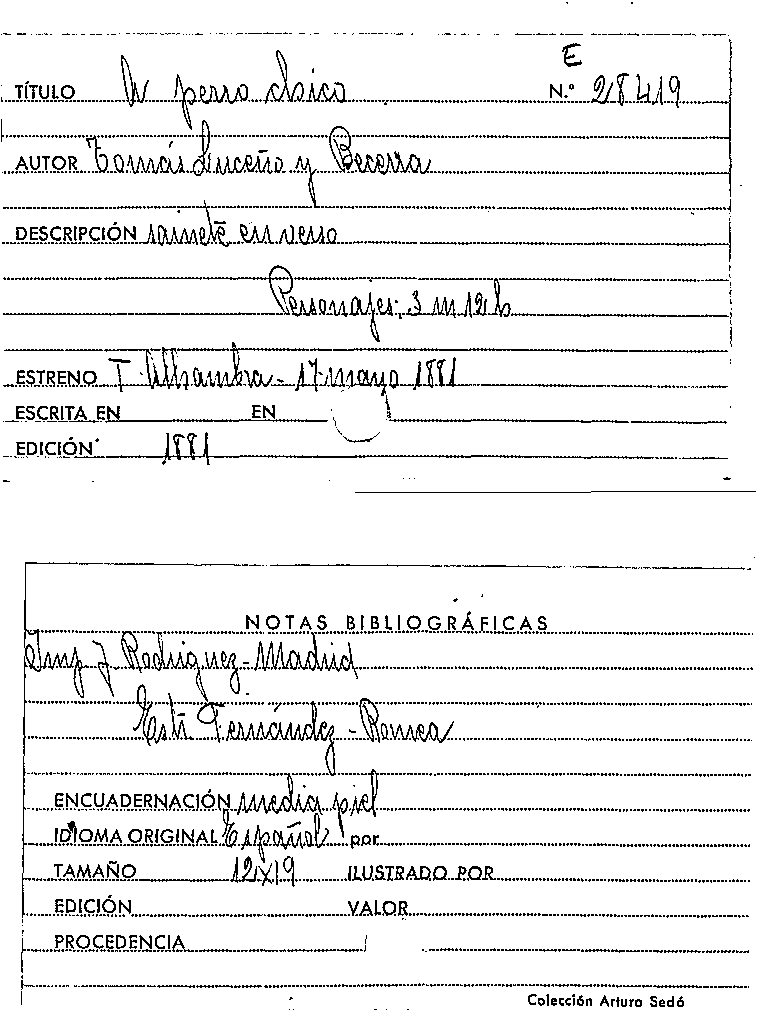 E
TÍTULO A perro chico N.º 28419
AUTOR Tomás Luceño y Becerra
DESCRIPCIÓN sainete en verso
Personajes: 3 m 12 h
ESTRENO T. Alhambra - 17 mayo 1881
ESCRITA EN EN
EDICIÓN 1881
NOTAS BIBLIOGRÁFICAS
Imp J Rodriguez - Madrid
Estr Fernández - Romea
ENCUADERNACIÓN media piel
IDIOMA ORIGINAL Español por
TAMAÑO 12x19 ILUSTRADO POR
EDICIÓN VALOR
PROCEDENCIA
Colección Arturo Sedó